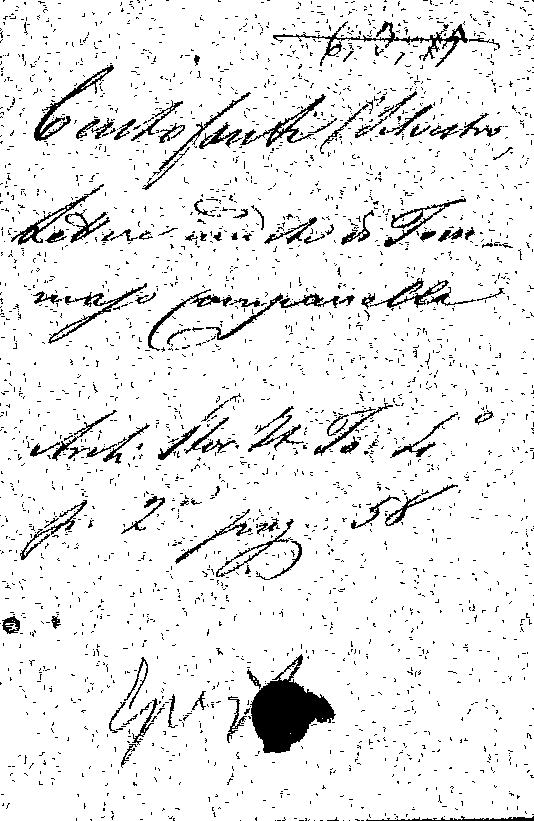 6, 3, 19
Centofanti (Silvestro,
Lettere inedite di Tom_
maso Campanella
Arch. Stor. It. To. 4°
p. 2ª pag. 58